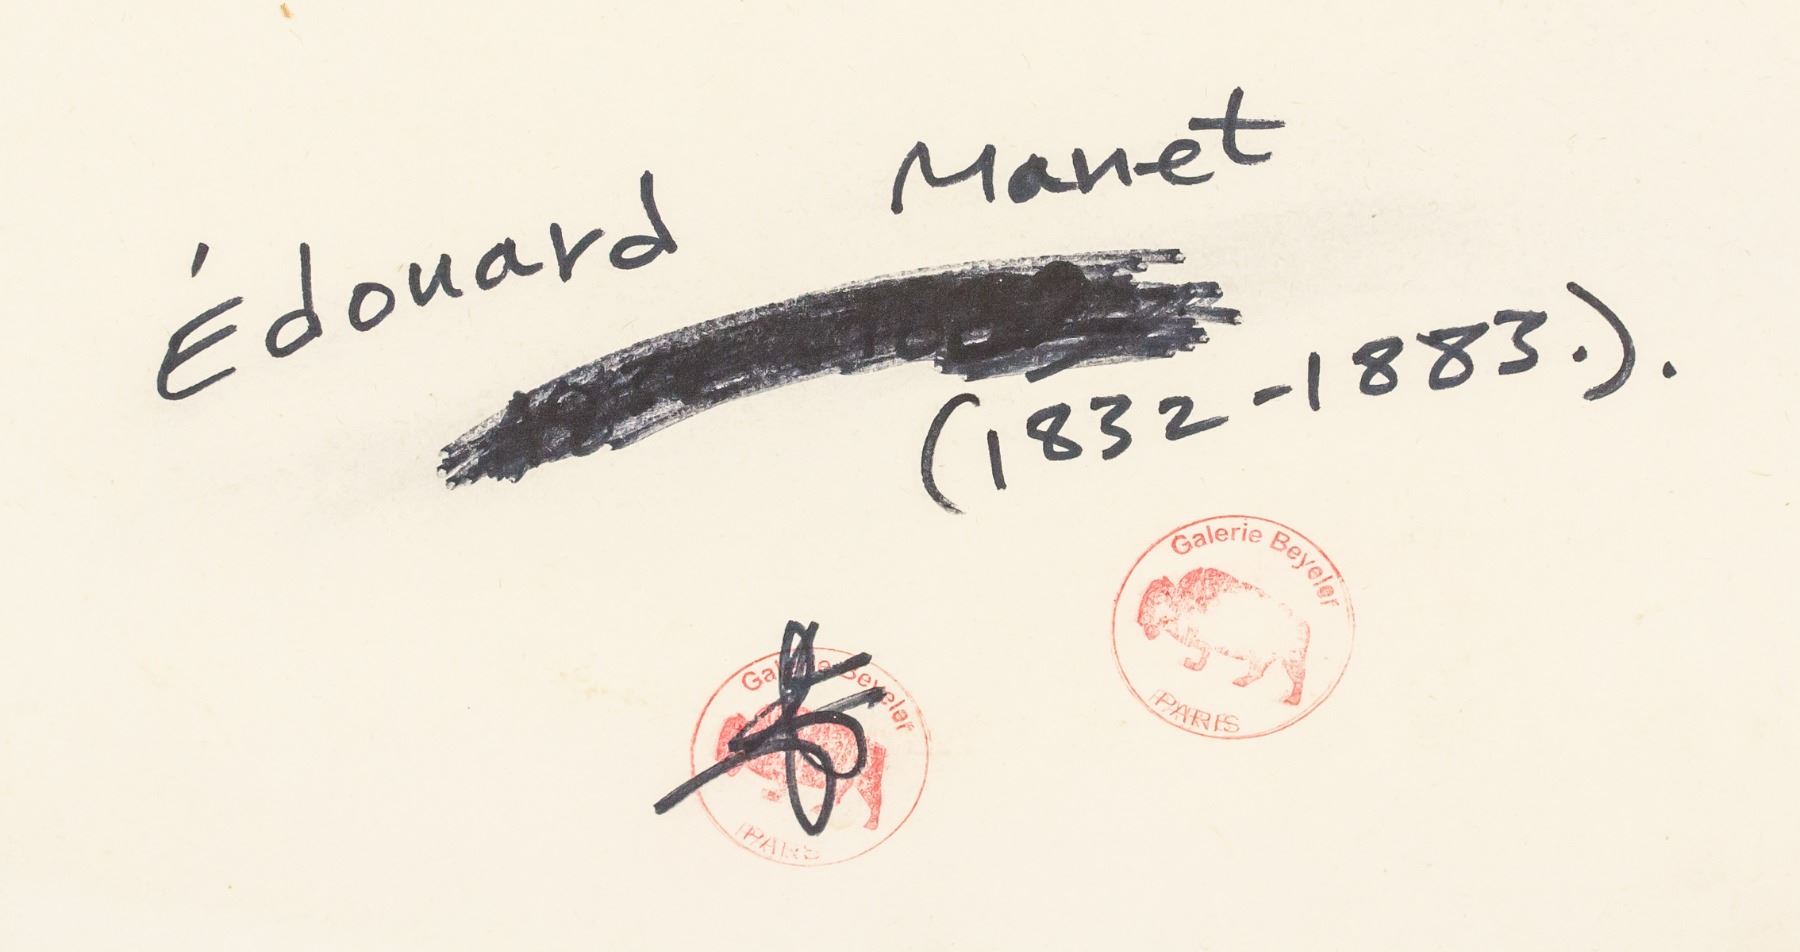 Édouard Manet
(1832-1883.).
Galerie Beyeler
PARIS
Galerie Beyeler
PARIS